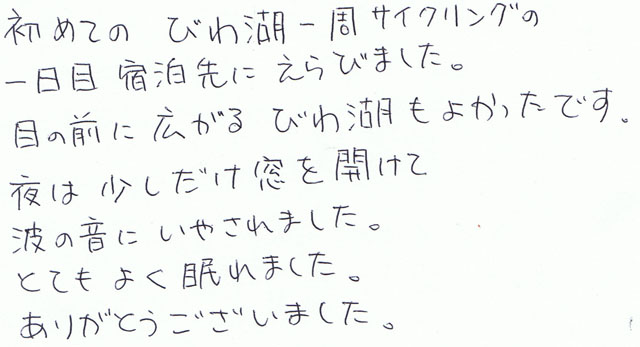 初めての びわ湖一周サイクリングの
一日目 宿泊先に えらびました。
目の前に 広がる びわ湖もよかったです。
夜は 少しだけ 窓を 開けて
波の音に いやされました。
とても よく 眠れました。
ありがとうございました。